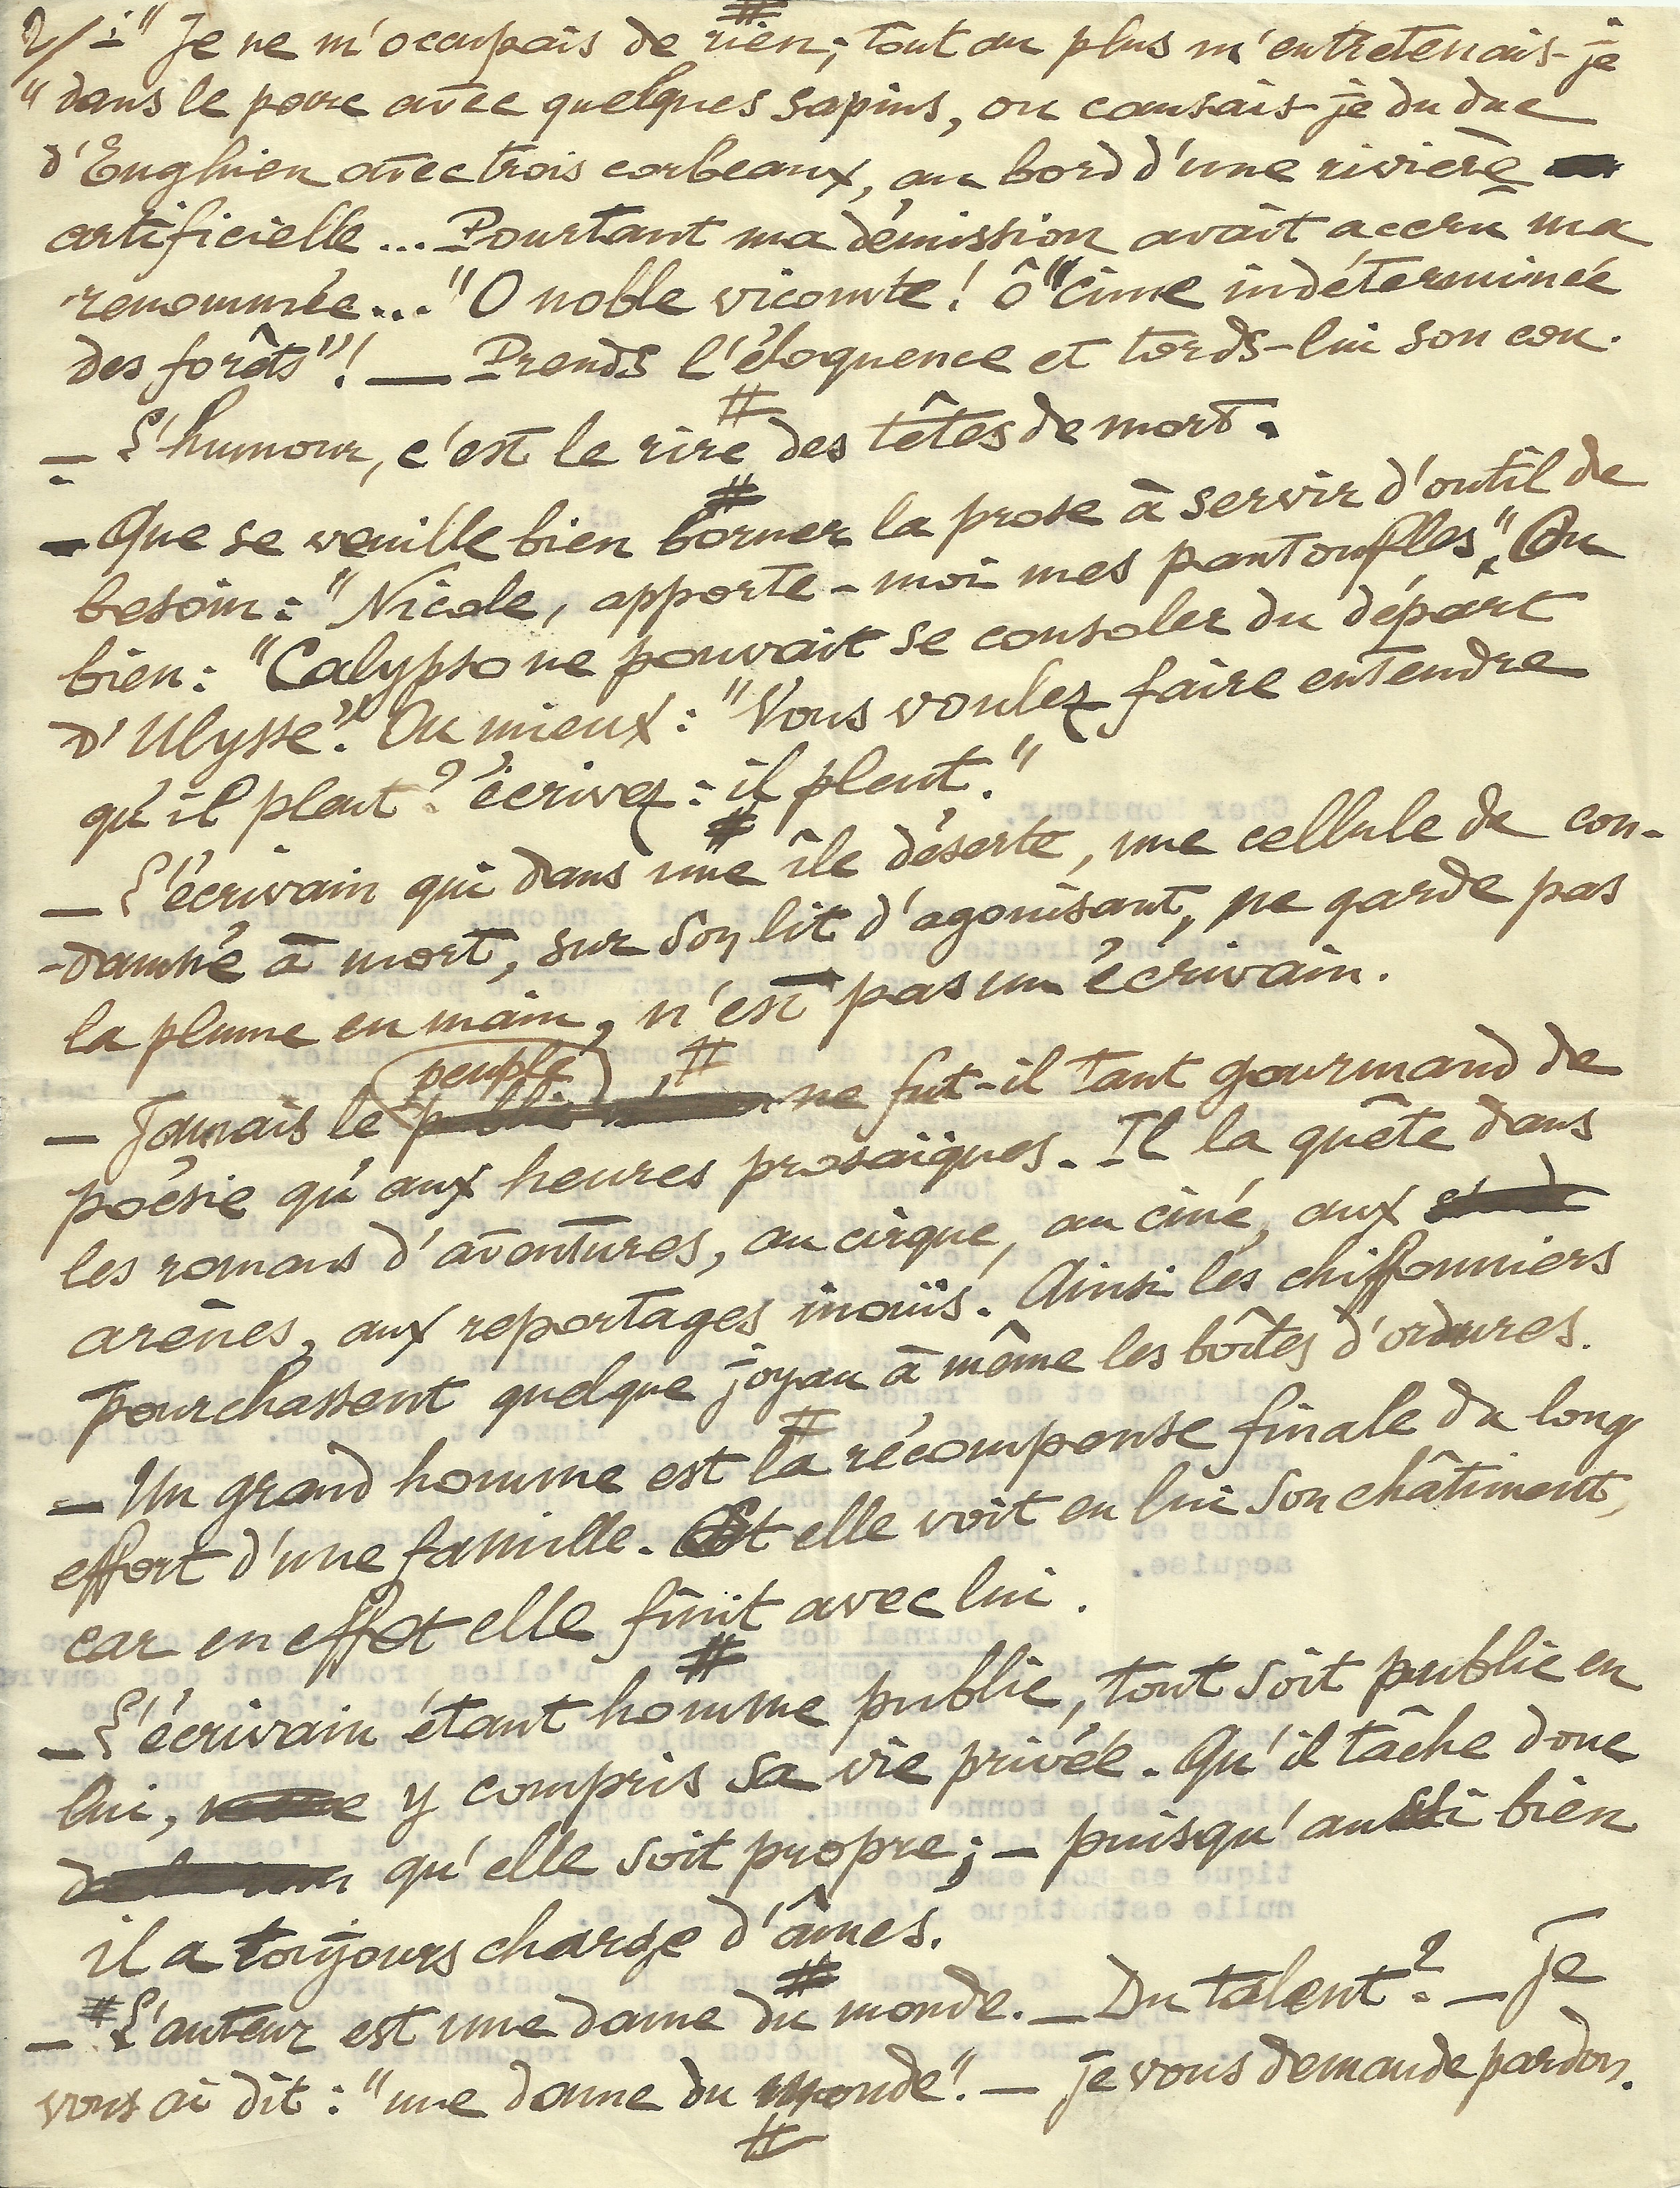 2/ : " Je ne m'occupais de rien ; tout au plus m'entretenais-je
" dans le parc avec quelques sapins, ou causais-je du duc
d'Enghien avec trois corbeaux, au bord d'une rivière
artificielle... Pourtant ma démission avait accru ma
renommée... " O noble vicomte ! ô "cime indéterminée
des forêts" ! — Prends l'éloquence et tords-lui son cou.
#
— L'humour, c'est le rire des têtes de mort.
#
— Que se veuille bien borner la prose à servir d'outil de
besoin : "Nicole, apporte-moi mes pantoufles". Ou
bien : "Calypso ne pouvait se consoler du départ
d'Ulysse". Ou mieux : "Vous voulez faire entendre
qu'il pleut ? écrivez : il pleut."
#
— L'écrivain qui dans une île déserte, une cellule de con-
-damné à mort, sur son lit d'agonisant, ne garde pas
la plume en main, n'est pas un écrivain.
#
peuple
— Jamais le ne fut-il tant gourmand de
poésie qu'aux heures prosaïques. Il la quête dans
les romans d'aventures, au cirque, au ciné, aux
arènes, aux reportages inouïs. Ainsi les chiffonniers
pourchassent quelque joyau à même les boîtes d'ordures.
#
— Un grand homme est la récompense finale du long
effort d'une famille. Et elle voit en lui son châtiment,
car en effet elle finit avec lui.
#
— L'écrivain étant homme public, tout soit public en
lui, y compris sa vie privée. Qu'il tâche donc
qu'elle soit propre ; — puisqu'aussi bien
il a toujours charge d'âmes.
#
— # L'auteur est une dame du monde. — Du talent ? — Je
vous ai dit : "une dame du monde". — Je vous demande pardon.
#